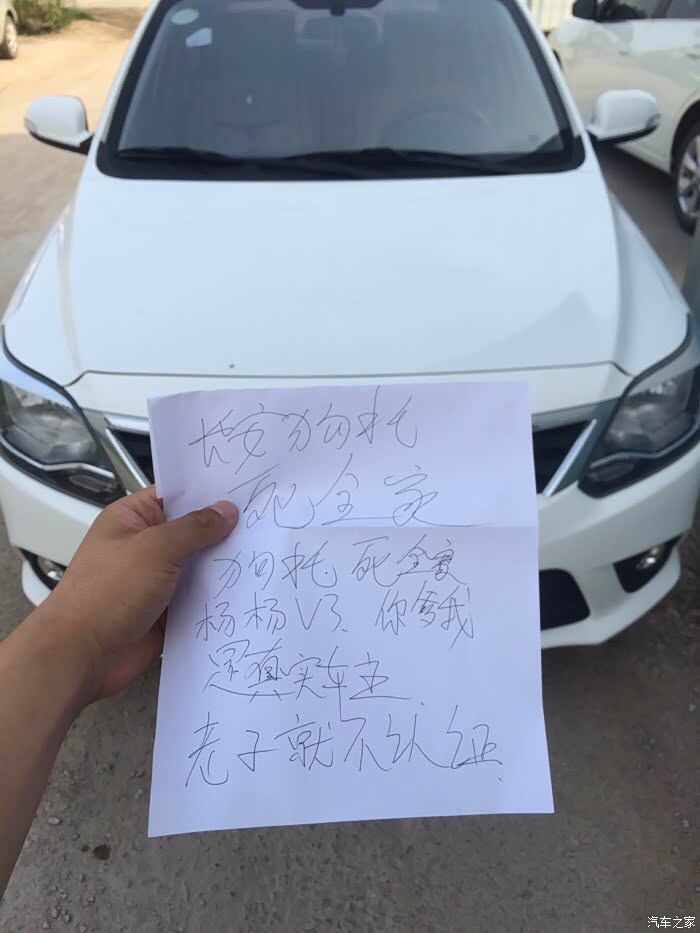 长安狗托
死全家
狗托死全家
杨杨V3、你爹我
是真实车主
老子就不认证
汽车之家